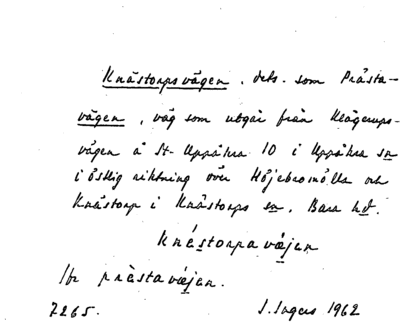 Knästorpsvägen, dets. som Prästa-
vägen, väg som utgår från Klågerups-
vägen å St. Uppåkra 10 i Uppåkra sn
i östlig riktning över Höjebromölla och
Knästorp i Knästorps sn. Bara hd.
knästorpavæjen
Jfr prästavæjen.
7265. S. Ingers 1962